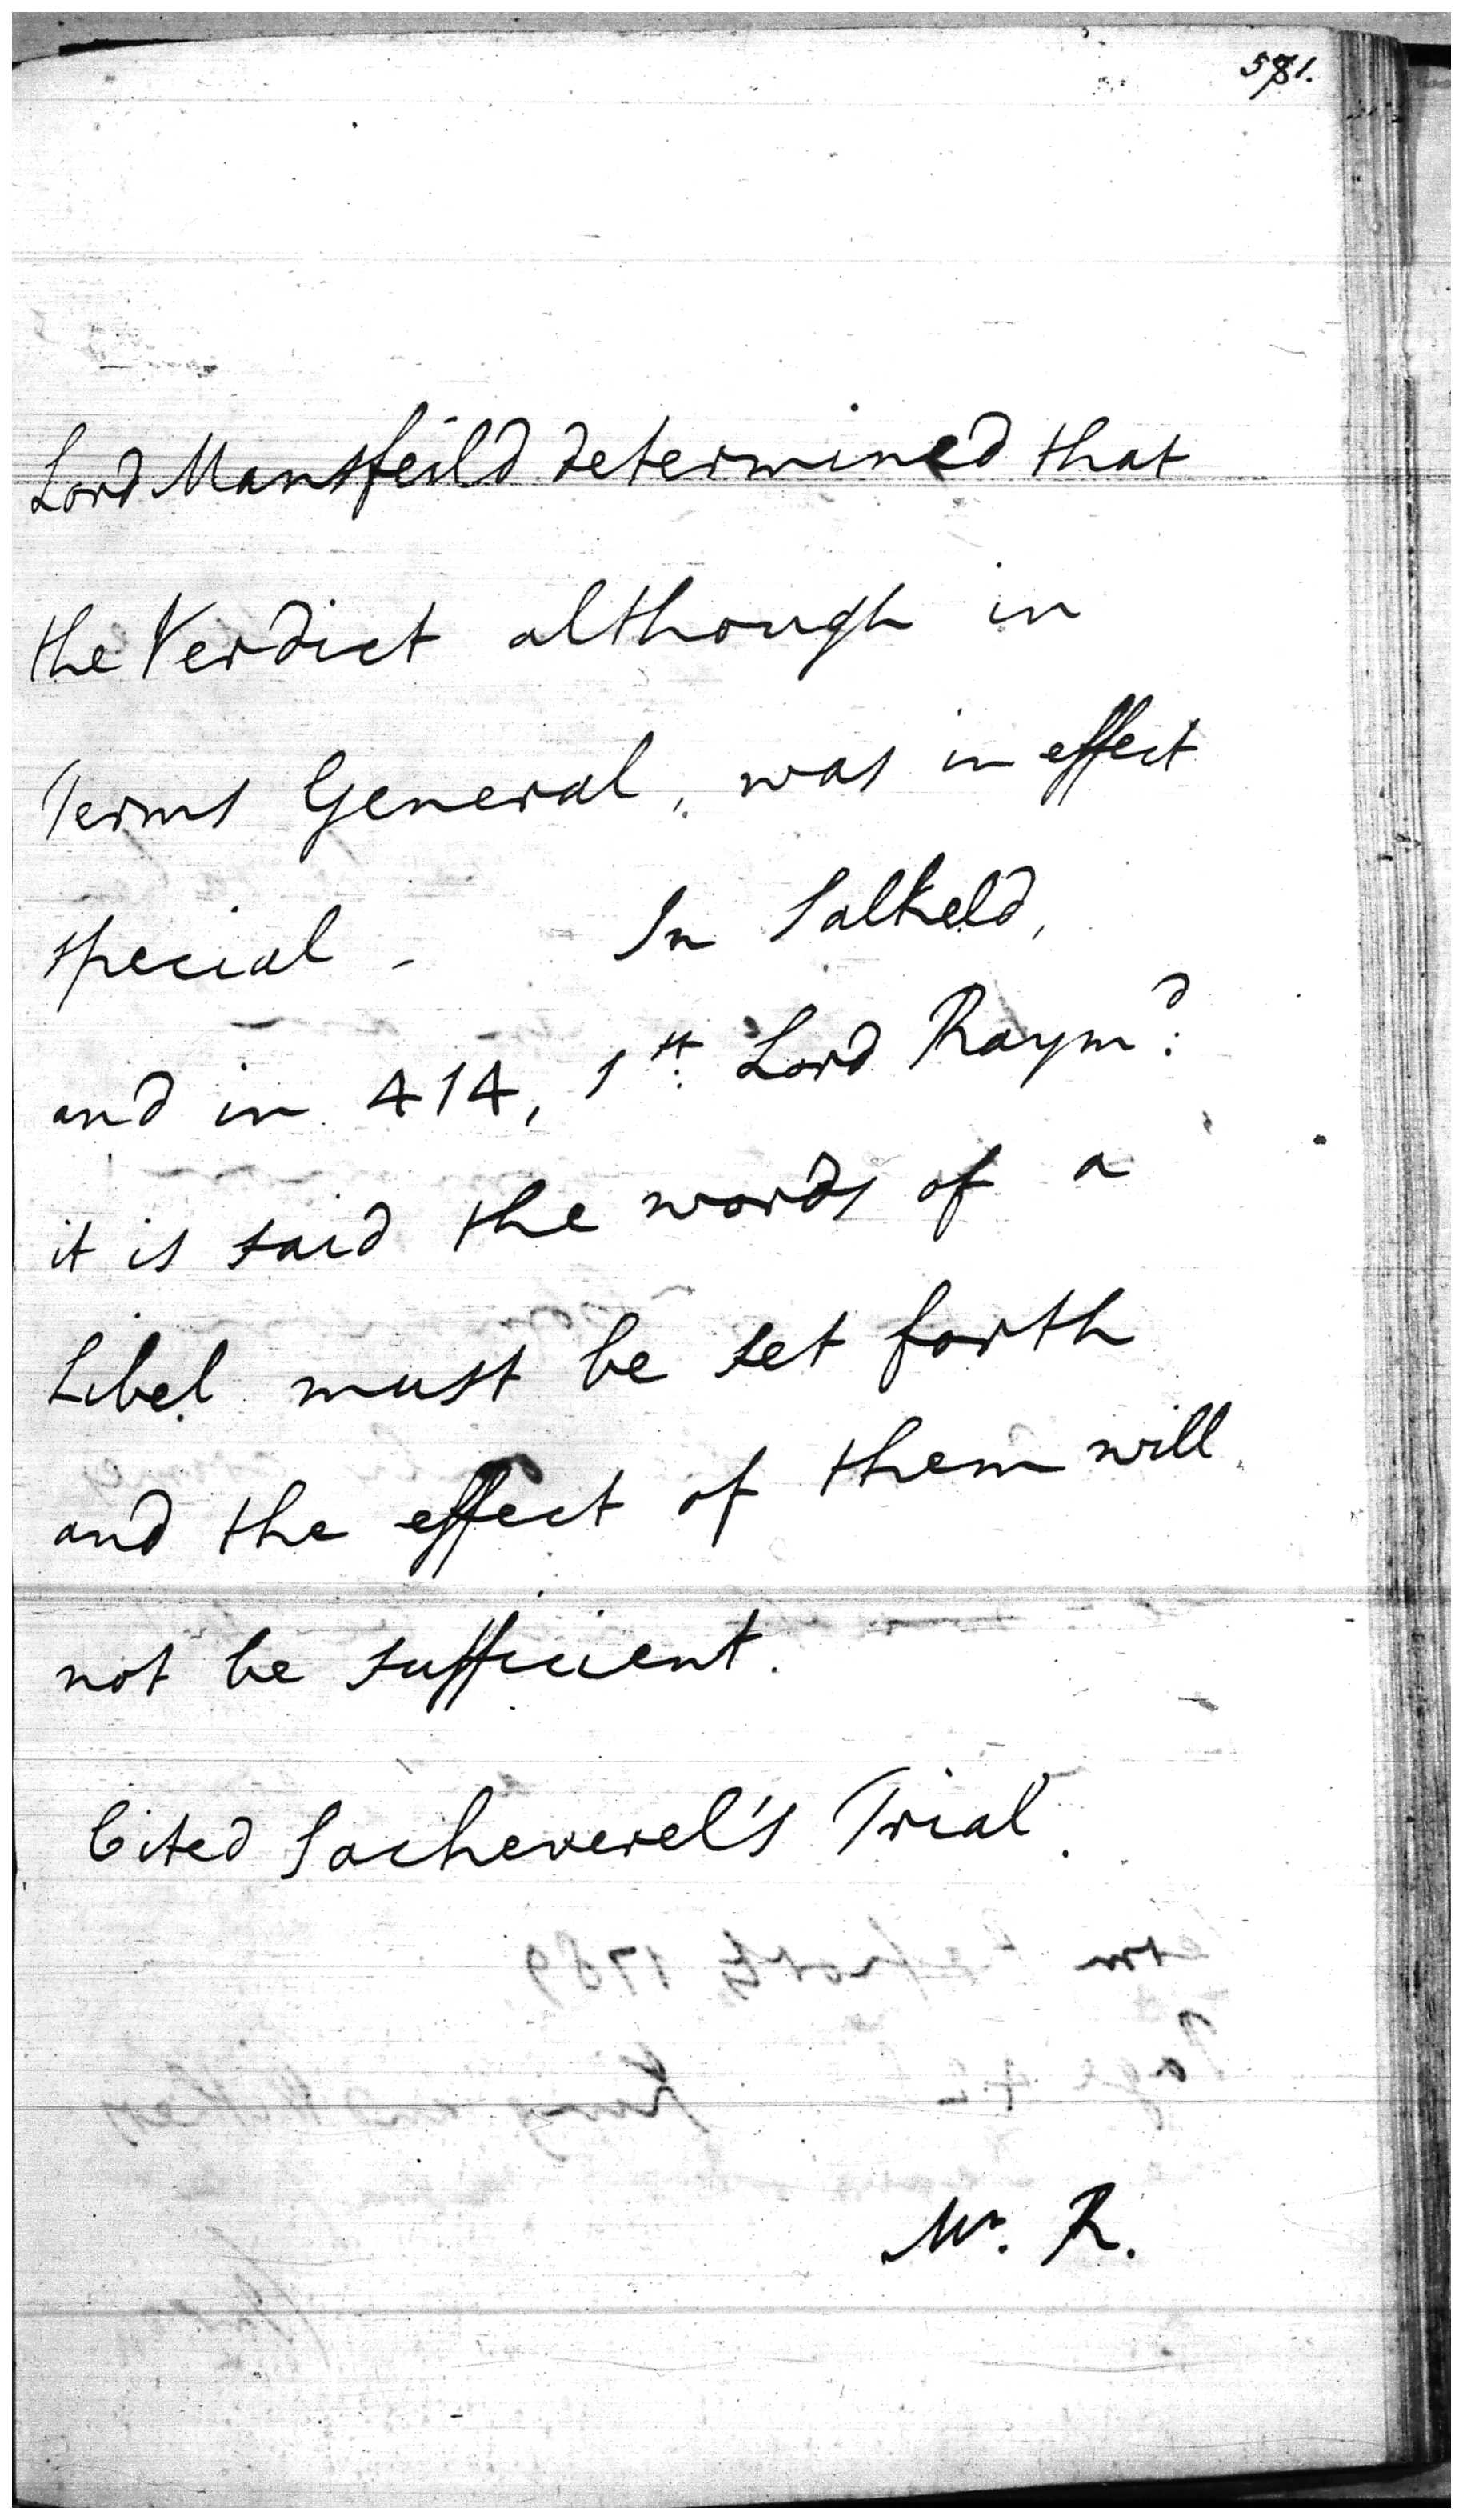 581.
Lord Mansfeild determined that
the Verdict although in
Terms General, was in effect
special - In Salkeld,
and in 414, 1st. Lord Raymd:
it is said the words of a
Libel must be set forth
and the effect of them will
not be sufficient.
Cited Sacheverel's Trial.
Mr. R.